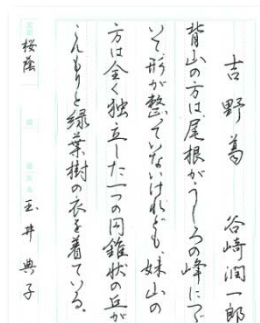 吉野葛　谷崎潤一郎
背山の方は、尾根がうしろの峰につづ
いて形が整っていないけれども、妹山の
方は全く独立した一つの円錐状の丘が
こんもりと緑葉樹の衣を着ている。
桜蔭　玉井典子